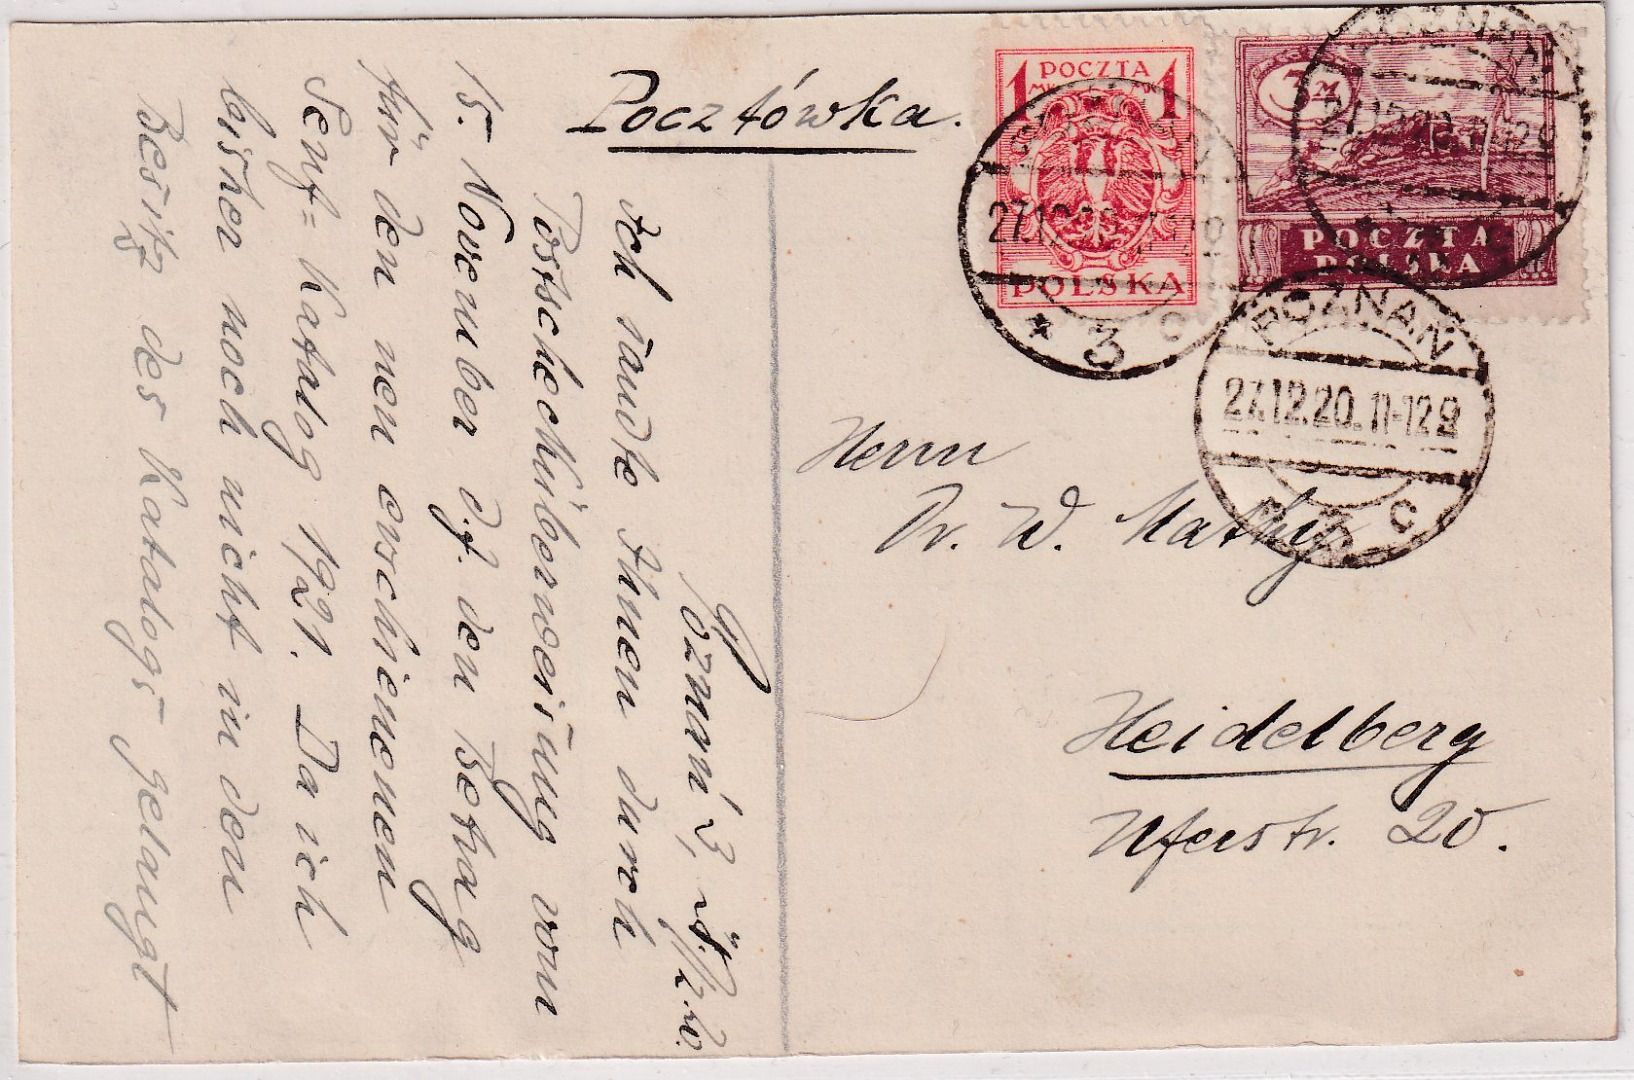 Pocztówka.
1 POCZTA 1
POLSKA
3 M
POCZTA
POLSKA
27.12.20
* 3 c
POZNAŃ
27.12.20. 11-12 9
* 3 c
Herrn
Dr. W. Mathy
Heidelberg
Uferstr. 20.
Poznań 3,
Ich sandte Ihnen durch
Postschecküberweisung vom
15. November d.J. den Betrag
für den neu erschienenen
Senf= Katalog 1921. Da ich
bisher noch nicht in den
Besitz des Katalogs gelangt